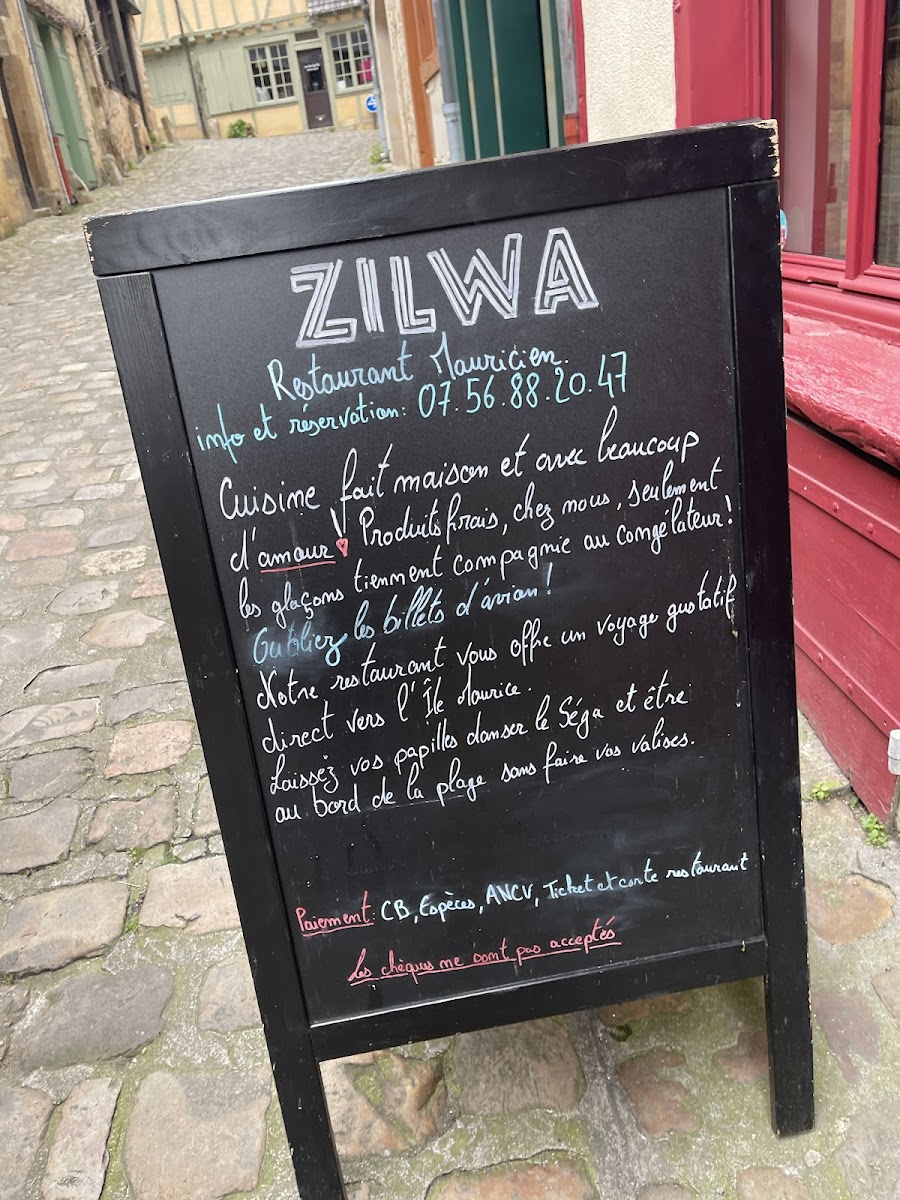 ZILWA
Restaurant Mauricien.
info et réservation: 07.56.88.20.47
Cuisine fait maison et avec beaucoup
d'amour Produits frais, chez nous, seulement
les glaçons tiennent compagnie au congélateur!
Oubliez les billets d'avion!
Notre restaurant vous offre un voyage gustatif
direct vers l'Île Maurice.
Laissez vos papilles danser le Séga et être
au bord de la plage sans faire vos valises.
Paiement: CB, Espèces, ANCV, Ticket et carte restaurant
Les chèques ne sont pas acceptés